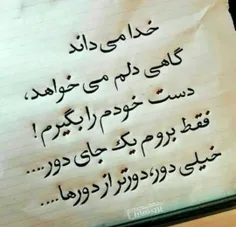 خدا می داند
گاهی دلم می خواهد،
دست خودم را بگیرم!
فقط بروم یک جای دور....
خیلی دور، دورتر از دورها....